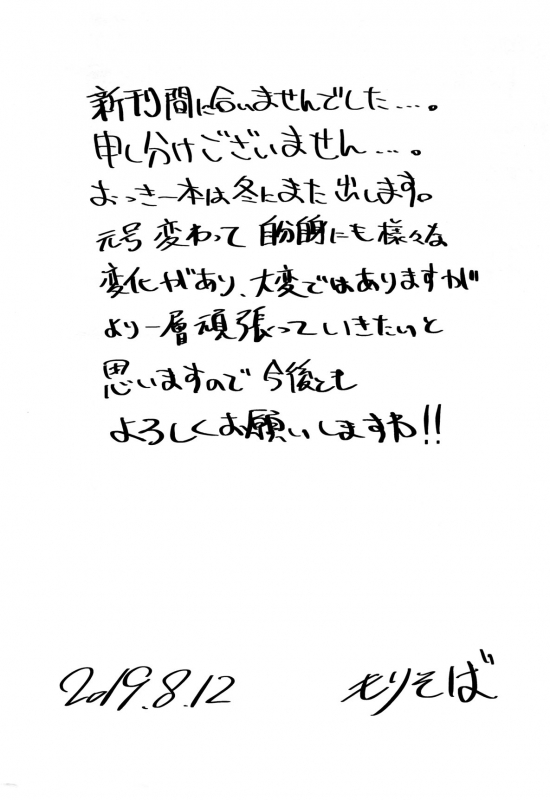 新刊間に合いませんでした…。
申し分けございません…。
おっきー本は冬にまた出します。
元号変わって自分自身にも様々な
変化があり、大変ではありますが
より一層頑張っていきたいと
思いますので今後とも
よろしくお願いしますわ!!
2019.8.12
もりそば